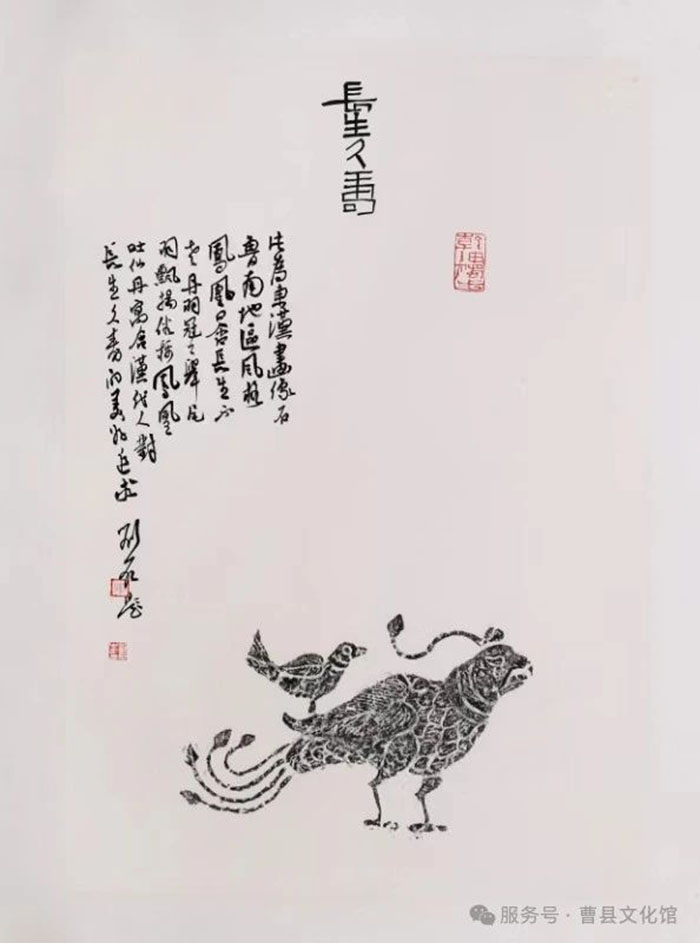 長生久壽
此為東漢畫像石
魯南地區風格
鳳凰口含長生不
老丹羽冠尾
羽飄揚鳳凰
吐仙丹寓含漢代人對
長生久壽的美好追求
服务号 · 曹县文化馆